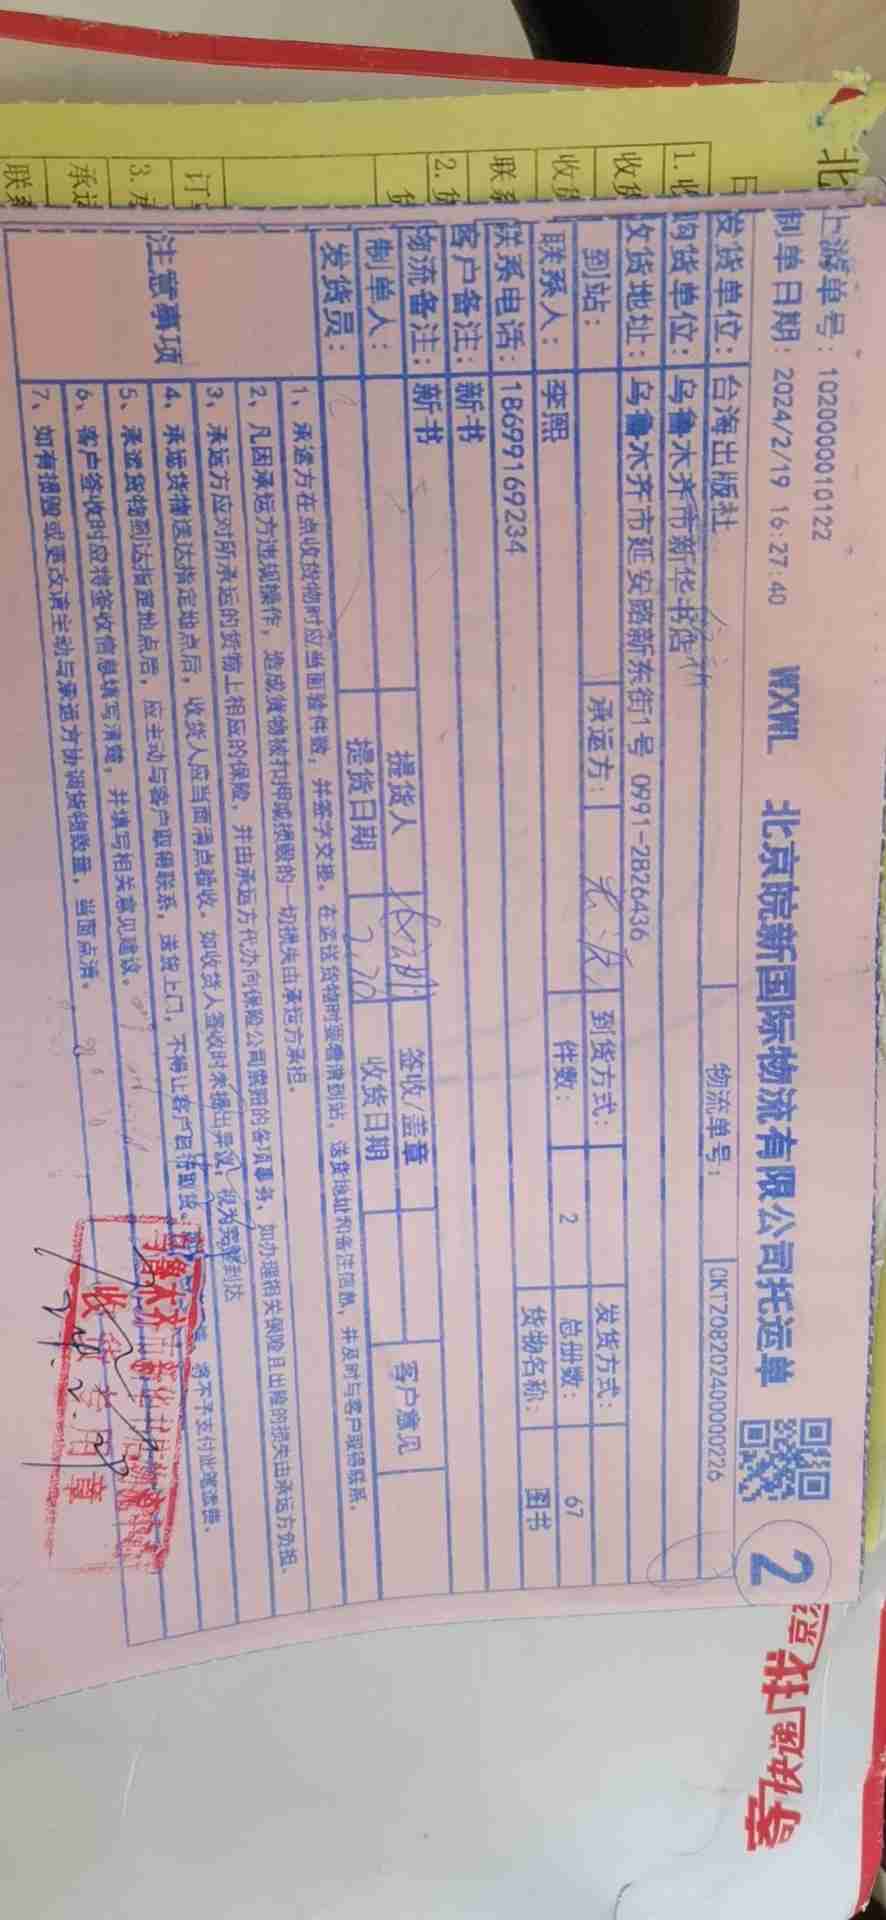 上游单号：1020000010122
制单日期：2024/2/19 16:27:40 WXWL 北京皖新国际物流有限公司托运单 2
发货单位：台海出版社 物流单号： CKTZ08202400000226
购货单位：乌鲁木齐市新华书店
收货地址：乌鲁木齐市延安路新东街1号 0991-2826436
到站： 承运方： 到货方式： 发货方式：
联系人：李熙 件数：2 总册数：67
联系电话：18699169234 货物名称：图书
客户备注：新书
物流备注：新书
制单人： 提货人 签收/盖章 客户意见
发货员： 提货日期 2.20 收货日期
注意事项
1、承运方在点收货物时应当面验件数，并签字交接。在运送货物时要看清到站，送货地址和备注信息，并及时与客户取得联系。
2、凡因承运方违规操作，造成货物被扣押或损毁的一切损失由承运方承担。
3、承运方应对所承运的货物上相应的保险，并由承运方代办向保险公司索赔的各项事务，如办理相关保险且出险的损失由承运方负担。
4、承运货物送达指定地点后，收货人应当面清点验收。如收货人签收时未提出异议，视为完整到达
5、承运货物到达指定地点后，应主动与客户取得联系，送货上门，不得让客户自行取货。将不予支付此笔运费。
6、客户签收时应将签收信息填写清楚，并填写相关意见建议。
7、如有损毁或更改请主动与承运方协调货物数量，当面点清。
收货专用章
寄快递 找京